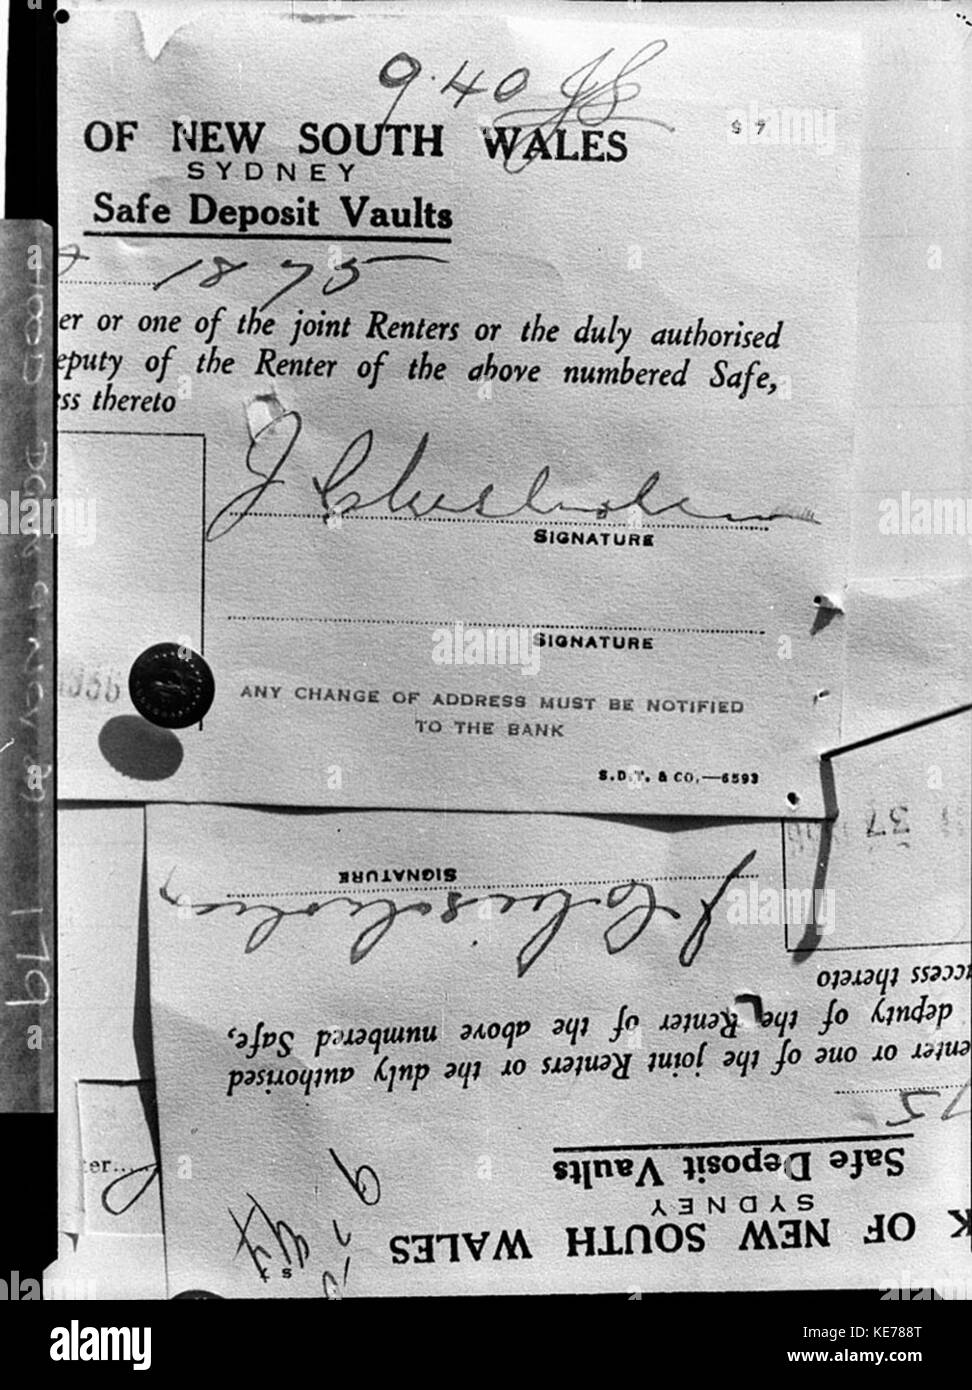 9.40 JC
OF NEW SOUTH WALES
S 7
SYDNEY
Safe Deposit Vaults
1875
er or one of the joint Renters or the duly authorised
eputy of the Renter of the above numbered Safe,
ss thereto
J Chisholm
SIGNATURE
SIGNATURE
ANY CHANGE OF ADDRESS MUST BE NOTIFIED
TO THE BANK
S.D.T. & CO.—6593
K OF NEW SOUTH WALES
SYDNEY
Safe Deposit Vaults
75
enter or one of the joint Renters or the duly authorised
deputy of the Renter of the above numbered Safe,
ccess thereto
37
J Chisholm
SIGNATURE
ter...
HOOD
179
alamy
Image ID: KE788T
www.alamy.com